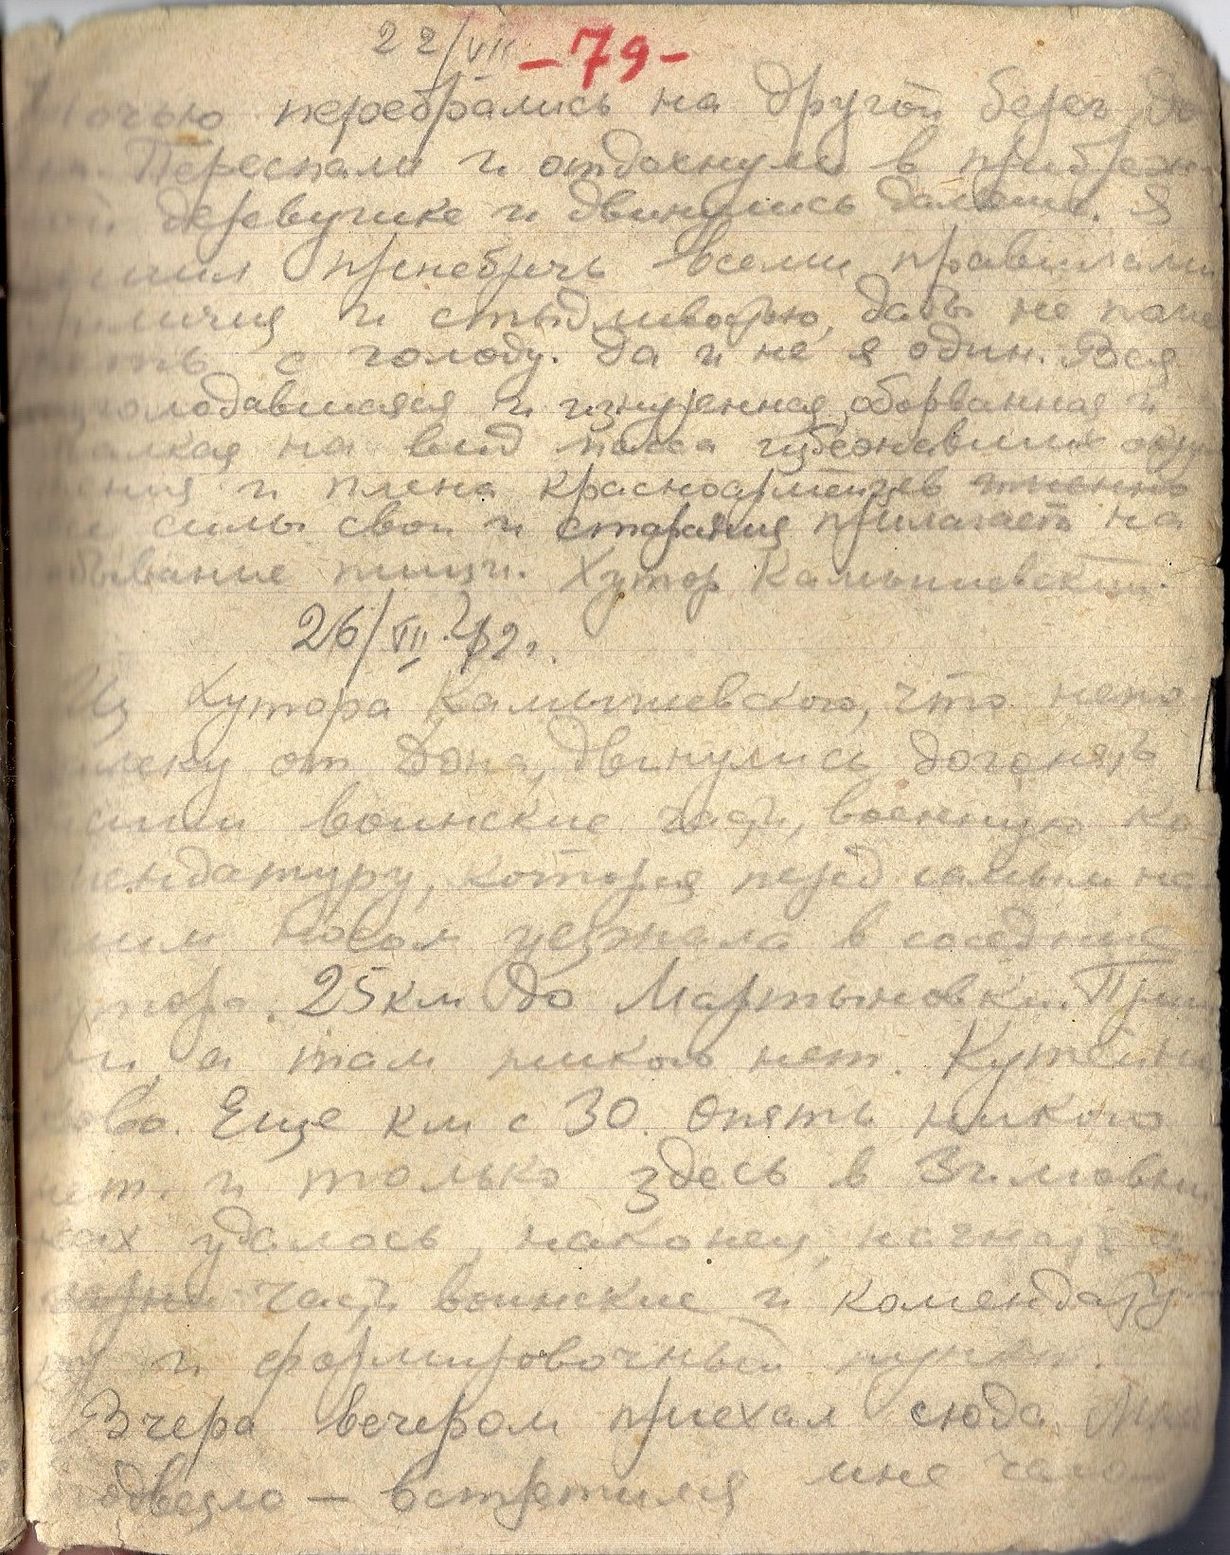 22/VII -79-
Ночью перебрались на другой берег До
на. Переспали и отдохнули в прибреж
ной деревушке и двинулись дальше. Я
решил пренебречь всеми правилами
приличия и стыдливостью, дабы не поме
реть с голоду. Да и не я один. Вся
изголодавшаяся и изнуренная, оборванная и
жалкая на вид масса избежавших окру
жения и плена красноармейцев именно
все силы свои и старания прилагает на
добывание пищи. Хутор Камышевский.
26/VII 42г.
Из Хутора Камышевского, что непо
далеку от Дона, двинулись догонять
наши воинские части, военную ко
мендатуру, которая перед самым на
шим носом уезжала в соседние
хутора. 25 км до Мартыновки. Приш
ли а там никого нет. Кутейни
ково. Еще км с 30. Опять никого
нет. и только здесь в Зимовни
ках удалось, наконец,
части воинские и комендату
ру и формировочный пункт.
Вчера вечером приехал сюда. Мне
подвезло — встретился мне чело